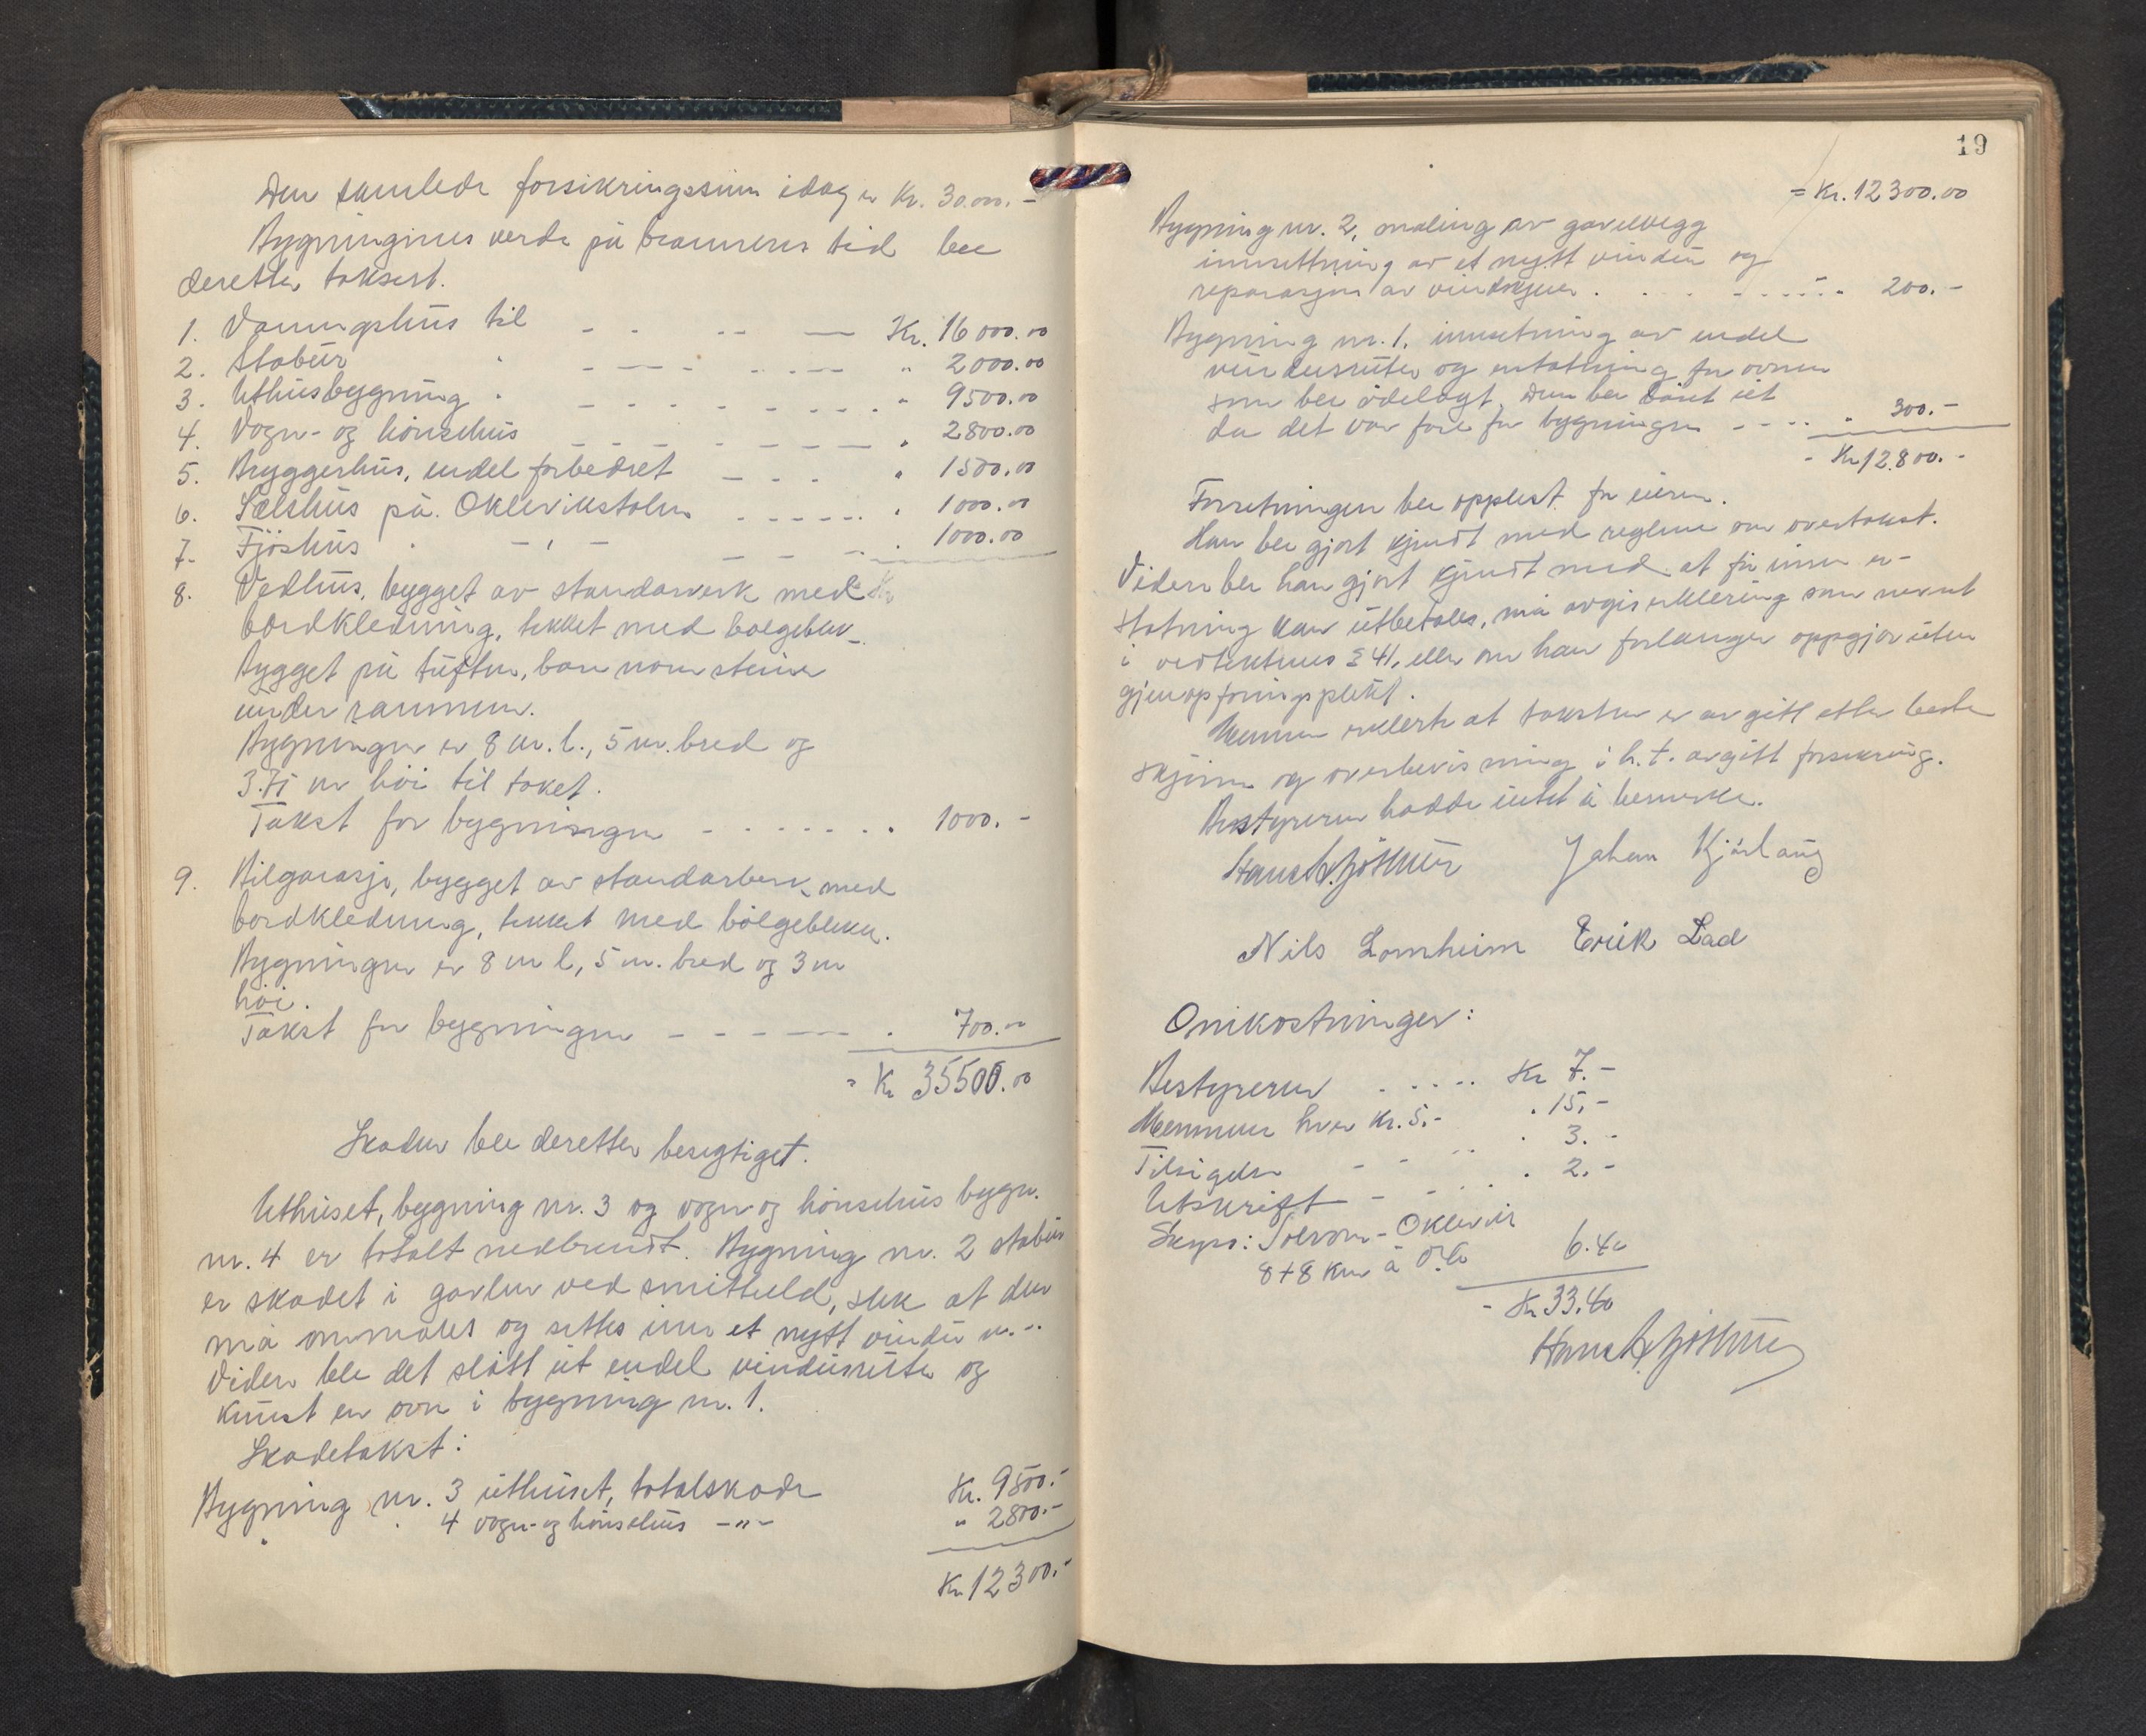 Den samlede forsikringssum idag er Kr. 30.000.-
Bygningenes verde på brannens tid ble
deretter taksert.
1. Våningshus til - - - - — Kr. 16000.00
2. Stabur " - - - - - - - " 2000.00
3. Uthusbygning " - - - - - - - " 9500.00
4. Vogn- og hönsehus - - - - - - - " 2800.00
5. Bryggerhus, endel forbedret - - - " 1500.00
6. Selshus på Oklevikstölen - - - - - " 1000.00
7. Fjöshus " - " - - - - - " 1000.00
8. Vedhus, bygget av standarverk med
bordkledning, tekket med bölgeblekk.
Bygget på tuften, bare noen steiner
under rammen.
Bygningen er 8 m. l., 5 m. bred og
3.75 m höi til taket.
Takst for bygningen - - - - - - - 1000.-
9. Bilgarasje, bygget av standarverk, med
bordkledning, tekket med bölgeblekk.
Bygningen er 8 m l, 5 m. bred og 3 m
höi.
Takst for bygningen - - - - - - " 700.00
= Kr 35500.00
Skaden ble deretter besigtiget.
Uthuset, bygning nr. 3 og vogn og hönsehus bygn.
nr. 4 er totalt nedbrendt. Bygning nr. 2 stabur
er skadet i gavlen ved smitteeld, slik at den
må ommales og settes inn et nytt vindu m..
Viden ble det slått ut endel vindusruter og
knust en ovn i bygning nr. 1.
Skadetakst:
Bygning nr. 3 uthuset, totalskade Kr. 9500.-
" " 4 vogn- og hönsehus -"- " 2800.-
Kr. 12300.-
19
= Kr. 12300.00
Bygning nr. 2, maling av gavelvegg
innsettning av et nytt vindu og
reparasjon av vindskjeer . . . - - - - - . 200.-
Bygning nr. 1. innsetning av endel
vindusruter og erstatning for ovnen
som ble ödelagt. Den ble båret ut
da det var fare for bygningen - - - - . 300.-
- Kr 12.800.-
Forretningen ble opplest for eieren.
Han ble gjort kjendt med reglene om overtakst.
Viden ble han gjort kjendt med at för innen er-
statning kan utbetales, må avgis erklering som nevnt
i vedtektenes § 41, eller om han forlanger oppgjör uten
gjenopföringsplikt.
Mennene erklerte at taksten er avgitt etter beste
skjönn og overbevisning i h. t. avgitt forsikring.
Bestyreren hadde intet å bemerke.
Johan Kjörlaug
Nils Lomheim Erik Lad
Omkostninger:
Bestyreren . . . . . Kr 7.-
Mennene hver Kr. 5.- " 15.-
Tilsigelse - - - " 3.-
Utskrift - - - " 2.-
Skyss: Solvorn - Oklevik
8+8 km à 0.40 6.40
- Kr 33.40